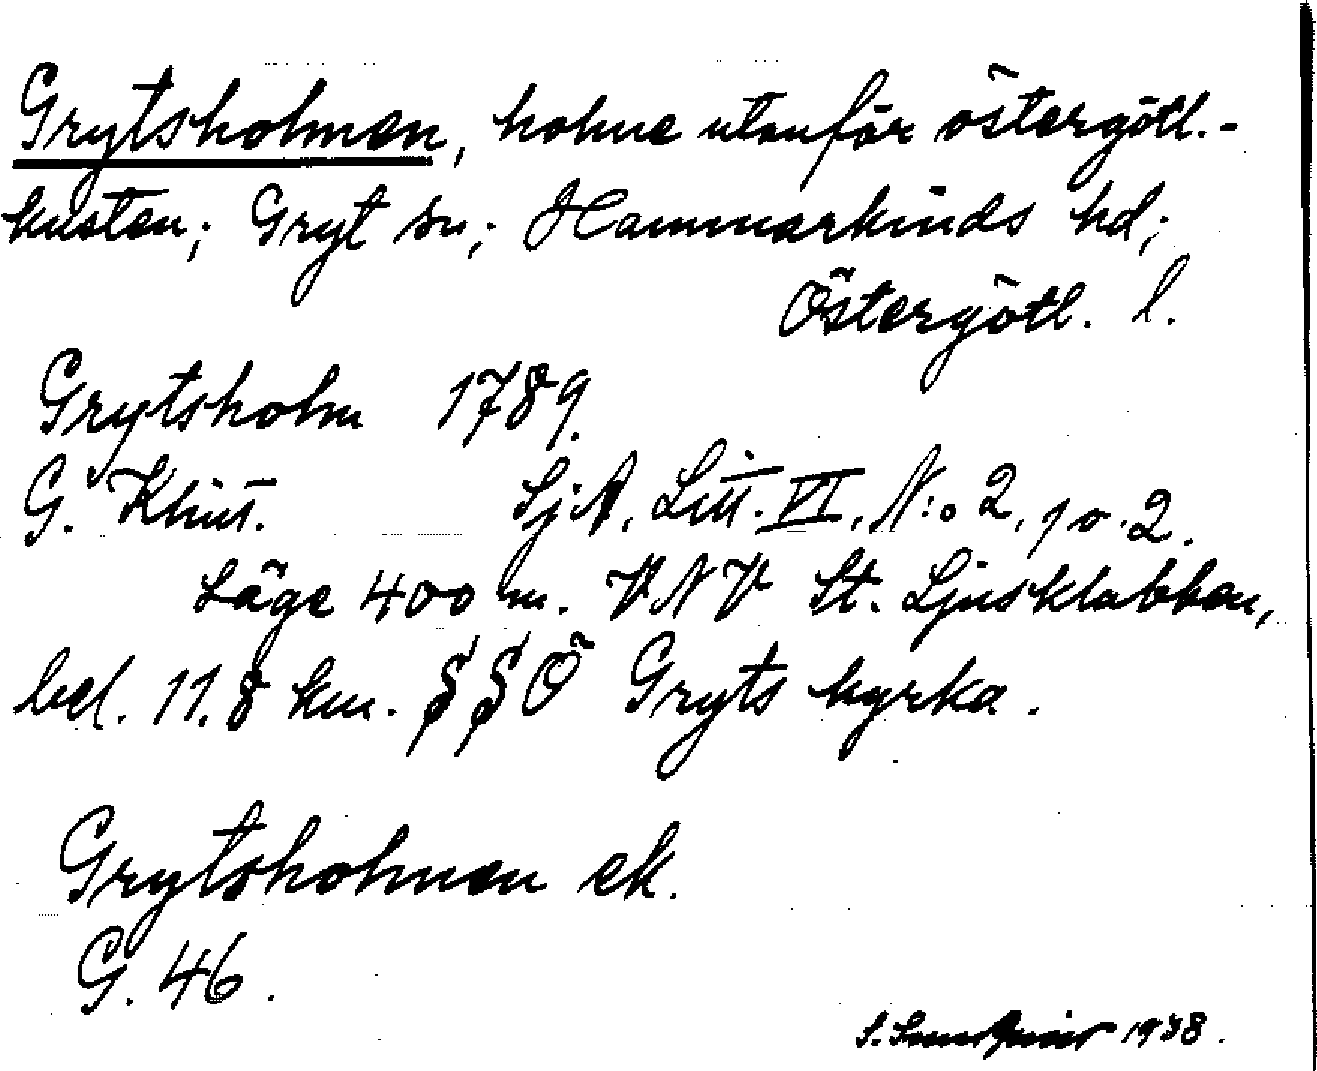 Grytsholmen, holme utanför östergötl.-
kusten; Gryt sn; Hammarkinds hd;
Östergötl. l.
Grytsholm 1789.
G. Klint. SjA, Litt. VI, N:o 2, po. 2.
Läge 400 m. VNV St. Ljusklabben,
bel. 11.8 km. SSÖ Gryts kyrka.
Grytsholmen ek.
G. 46.
S. 1938.